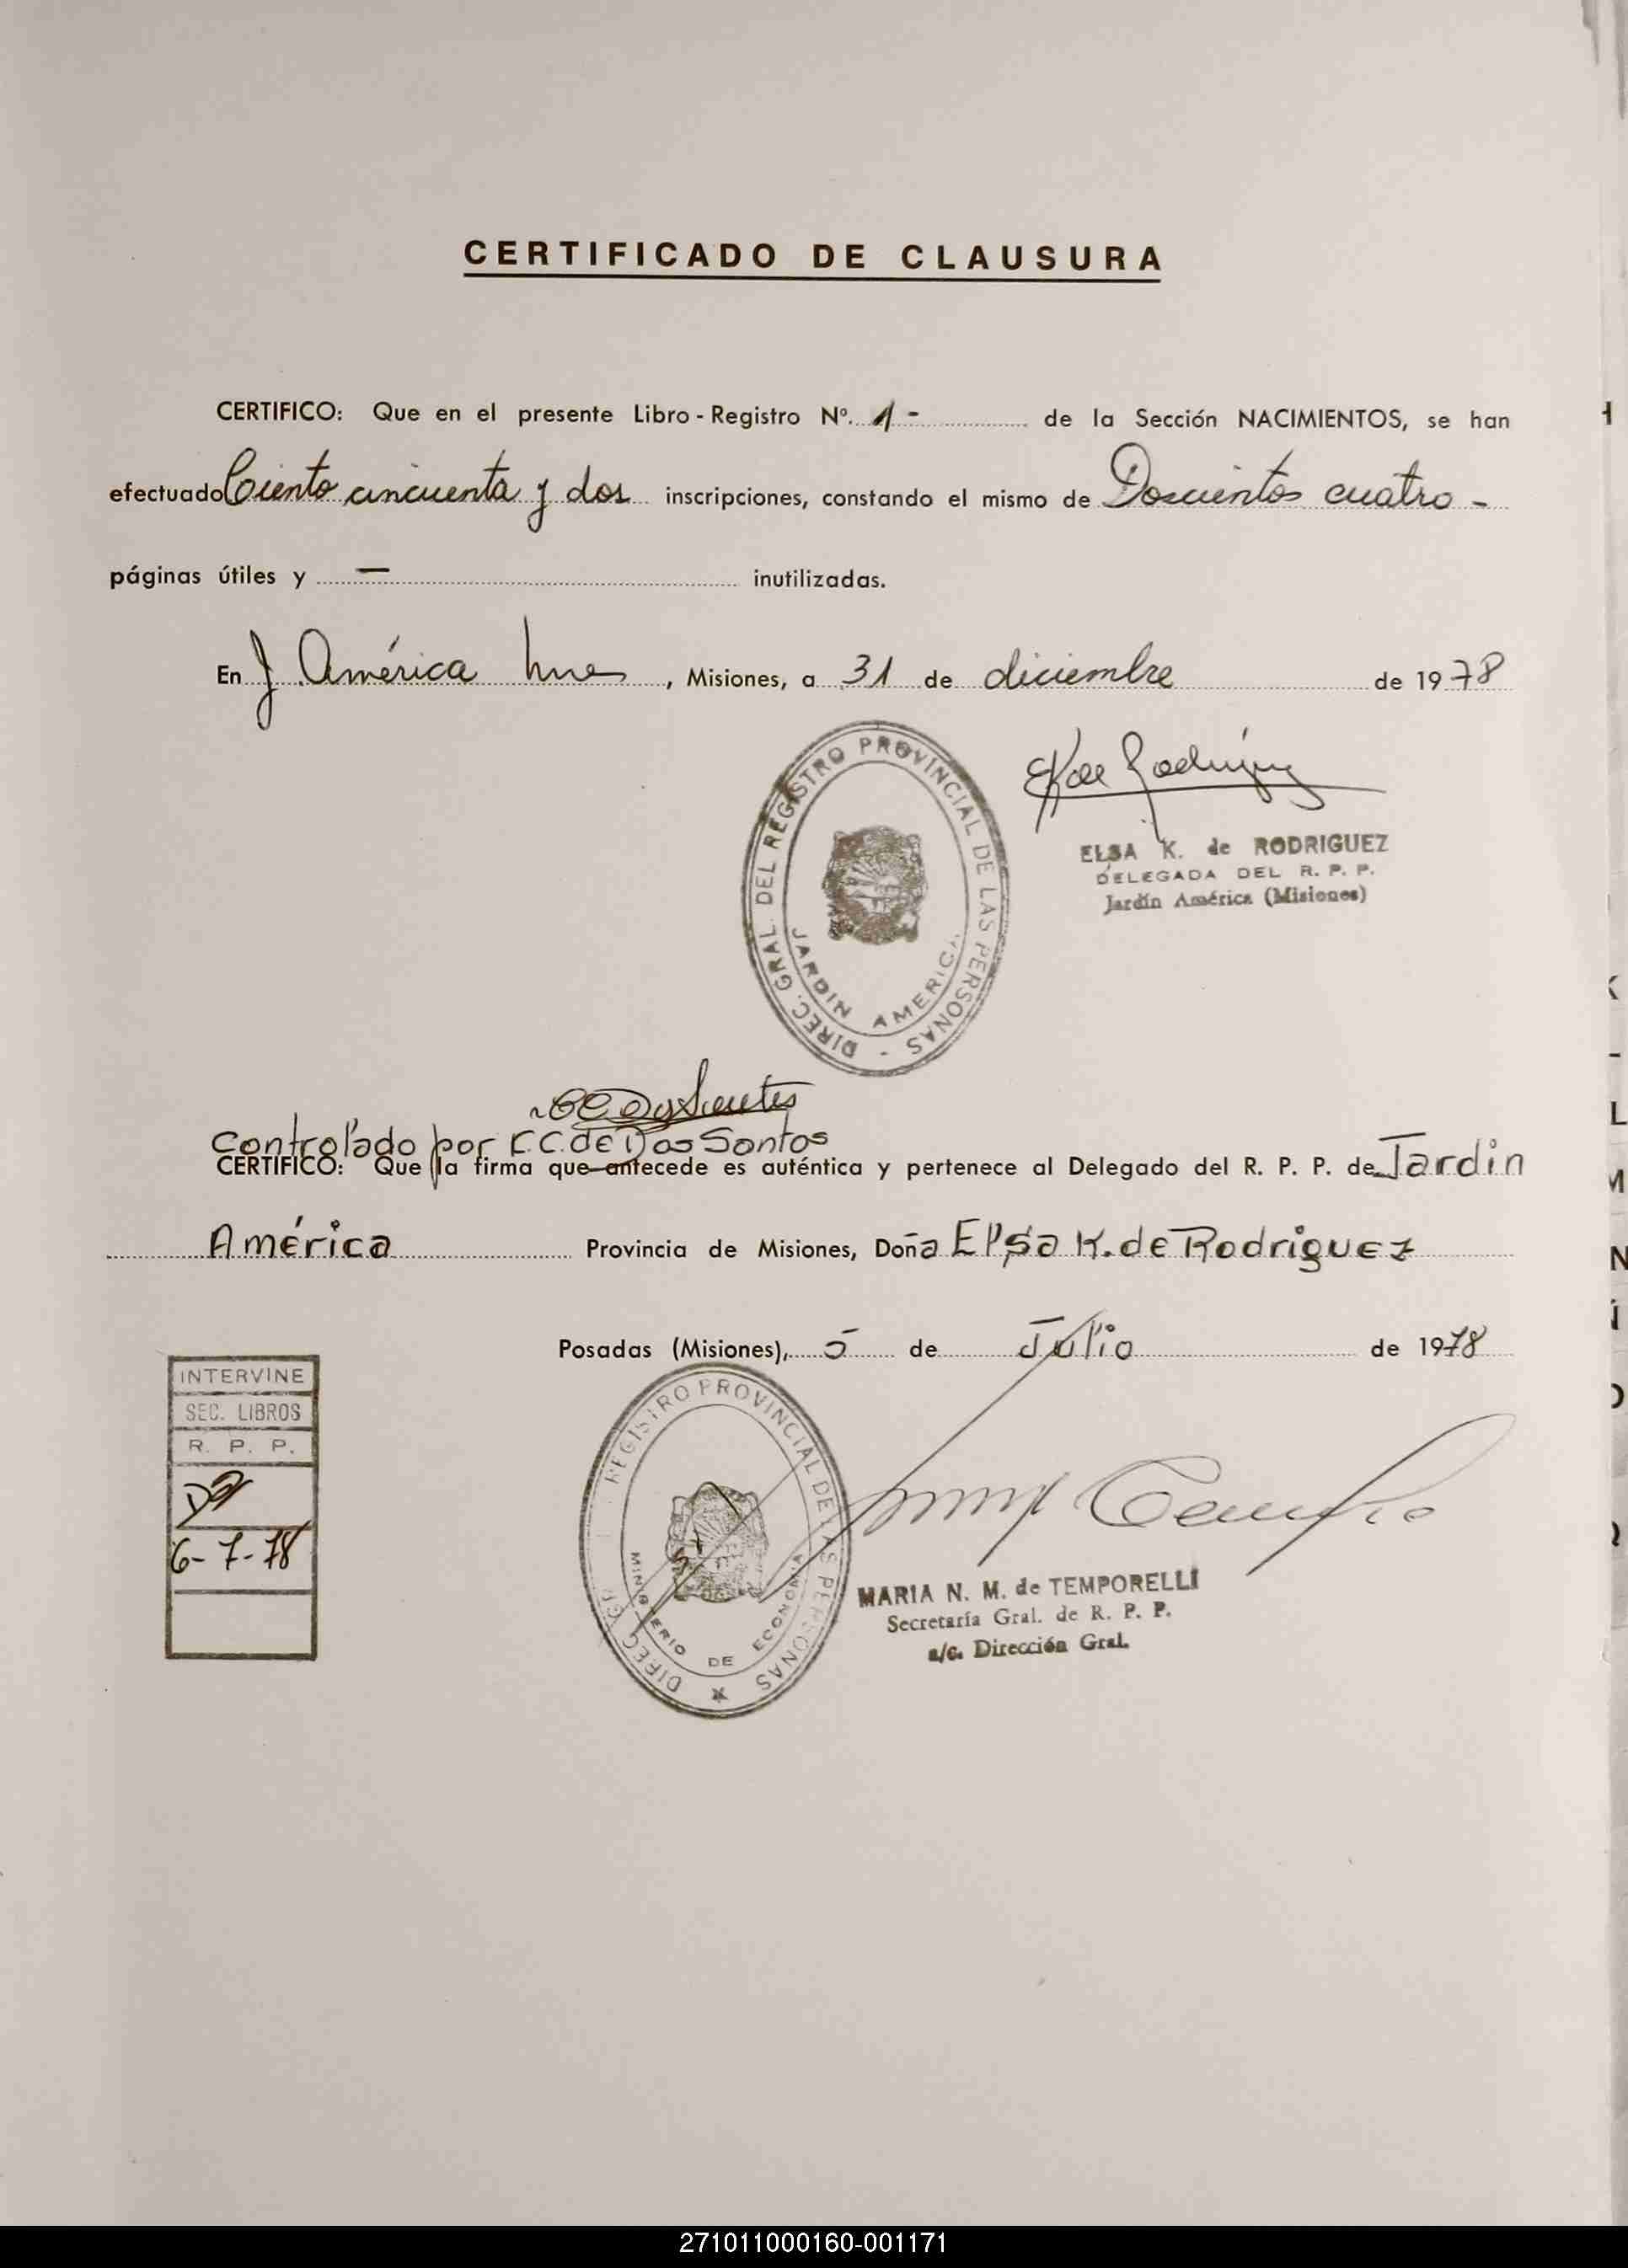 CERTIFICADO DE CLAUSURA
CERTIFICO: Que en el presente Libro - Registro Nº. 1 - de la Sección NACIMIENTOS, se han
efectuado Ciento cincuenta y dos inscripciones, constando el mismo de Doscientos cuatro -
páginas útiles y — inutilizadas.
En J. América, Misiones, a 31 de diciembre de 1978
DIREC. GRAL. DEL REGISTRO PROVINCIAL DE LAS PERSONAS -
JARDIN AMERICA
ELSA K. de RODRIGUEZ
DELEGADA DEL R. P. P.
Jardín América (Misiones)
Controlado por C. de Dos Santos
CERTIFICO: Que la firma que antecede es auténtica y pertenece al Delegado del R. P. P. de Jardin
América Provincia de Misiones, Doña Elsa K. de Rodriguez
Posadas (Misiones), 5 de Julio de 1978
INTERVINE
SEC. LIBROS
R. P. P.
6-7-78
REGISTRO PROVINCIAL DE LAS PERSONAS
MINISTERIO DE ECONOMIA
MARIA N. M. de TEMPORELLI
Secretaría Gral. de R. P. P.
a/c. Dirección Gral.
271011000160-001171